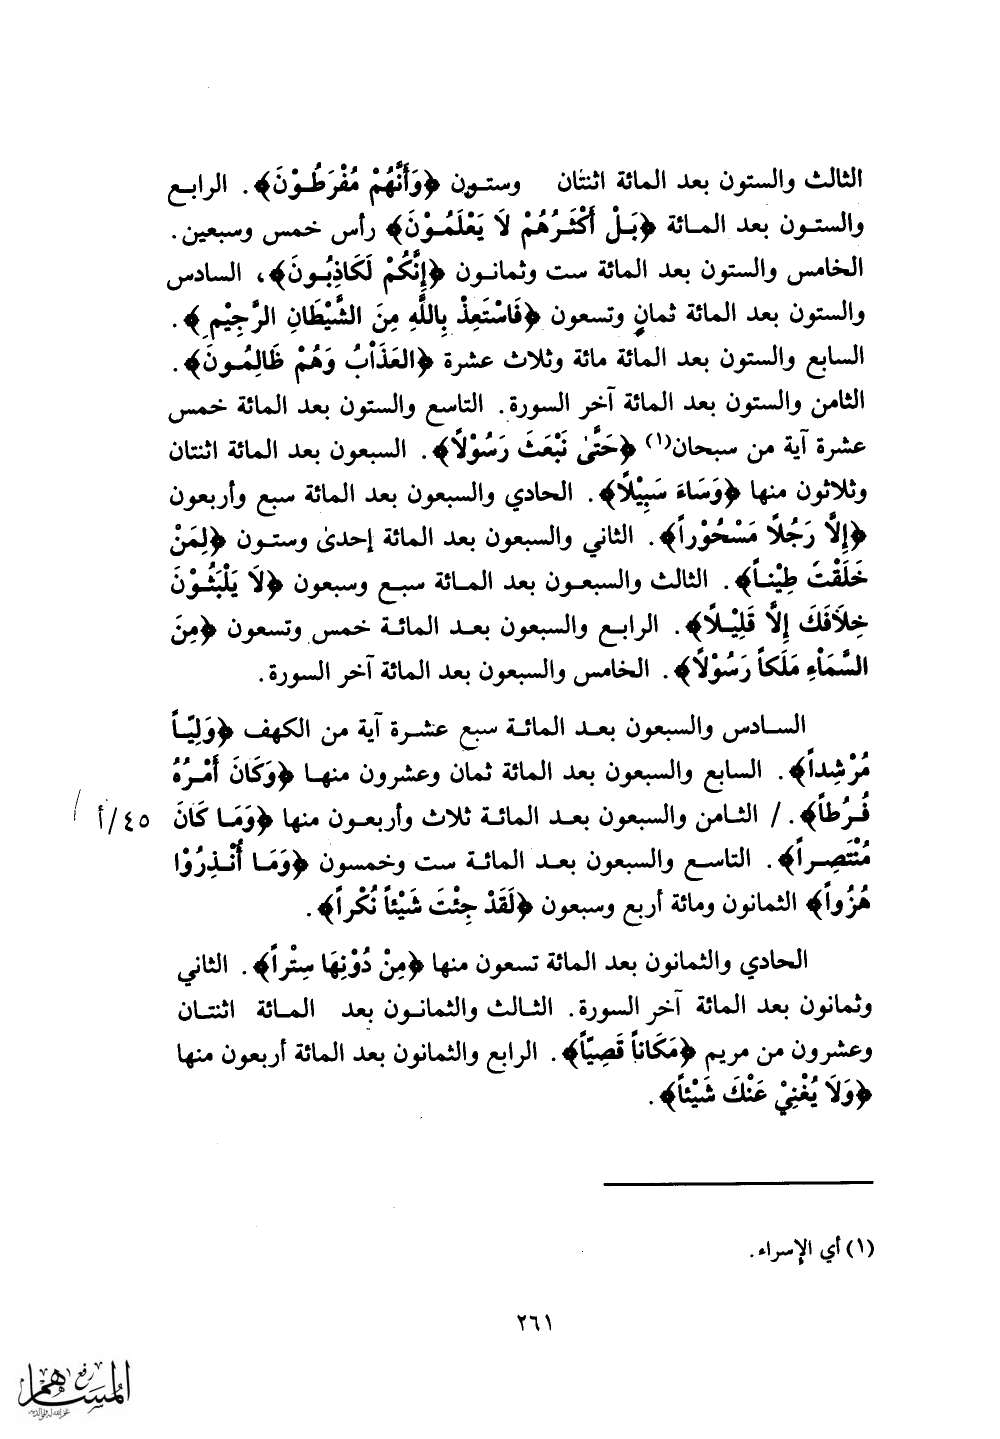 الثالث والستون بعد المائة اثنتان وستون ﴿وَأَنَّهُمْ مُفْرَطُوْنَ﴾. الرابع
والستون بعد المائة ﴿بَلْ أَكْثَرُهُمْ لَا يَعْلَمُوْنَ﴾ رأس خمس وسبعين.
الخامس والستون بعد المائة ست وثمانون ﴿إِنَّكُمْ لَكَاذِبُونَ﴾، السادس
والستون بعد المائة ثمانٍ وتسعون ﴿فَاسْتَعِذْ بِاللَّهِ مِنَ الشَّيْطَانِ الرَّجِيْمِ﴾.
السابع والستون بعد المائة مائة وثلاث عشرة ﴿العَذَاْبُ وَهُمْ ظَالِمُونَ﴾.
الثامن والستون بعد المائة آخر السورة. التاسع والستون بعد المائة خمس
عشرة آية من سبحان(١) ﴿حَتَّىٰ نَبْعَثَ رَسُوْلاً﴾. السبعون بعد المائة اثنتان
وثلاثون منها ﴿وَسَاءَ سَبِيْلاً﴾. الحادي والسبعون بعد المائة سبع وأربعون
﴿إِلَّا رَجُلاً مَسْحُوْراً﴾. الثاني والسبعون بعد المائة إحدىٰ وستون ﴿لِمَنْ
خَلَقْتَ طِيْناً﴾. الثالث والسبعون بعد المائة سبع وسبعون ﴿لَا يَلْبَثُوْنَ
خِلَافَكَ إِلَّا قَلِيْلاً﴾. الرابع والسبعون بعد المائة خمس وتسعون ﴿مِنَ
السَّمَاْءِ مَلَكاً رَسُوْلاً﴾. الخامس والسبعون بعد المائة آخر السورة.
السادس والسبعون بعد المائة سبع عشرة آية من الكهف ﴿وَلِيّاً
مُرْشِداً﴾. السابع والسبعون بعد المائة ثمان وعشرون منها ﴿وَكَانَ أَمْرُهُ
فُرُطاً﴾. / الثامن والسبعون بعد المائة ثلاث وأربعون منها ﴿وَمَا كَانَ ٤٥/أ
مُنْتَصِراً﴾. التاسع والسبعون بعد المائة ست وخمسون ﴿وَمَا أُنْذِرُوْا
هُزُواً﴾ الثمانون ومائة أربع وسبعون ﴿لَقَدْ جِئْتَ شَيْئاً نُكْراً﴾.
الحادي والثمانون بعد المائة تسعون منها ﴿مِنْ دُوْنِهَا سِتْراً﴾. الثاني
وثمانون بعد المائة آخر السورة. الثالث والثمانون بعد المائة اثنتان
وعشرون من مريم ﴿مَكَاناً قَصِيّاً﴾. الرابع والثمانون بعد المائة أربعون منها
﴿وَلَا يُغْنِيْ عَنْكَ شَيْئاً﴾.
(١) أي الإسراء.
٢٦١
رفع
المساهم